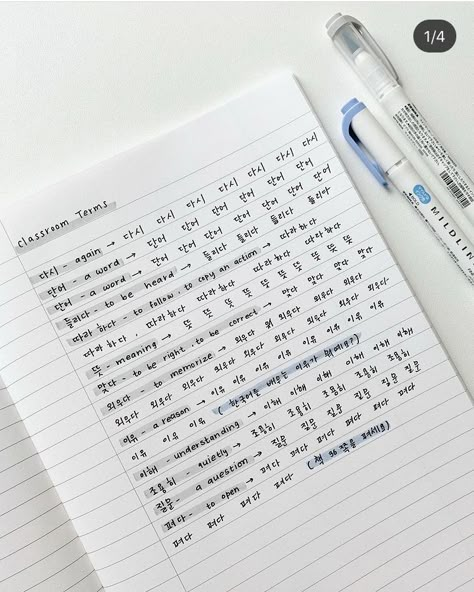 1/4
classroom Terms
다시 - again → 다시 다시 다시 다시 다시 다시 다시
단어 - a word → 단어 단어 단어 단어 단어 단어
단어 - a word → 단어 단어 단어 단어 단어 단어
들리다 - to be heard → 들리다 들리다 들리다 들리다
따라 하다 - to follow, to copy an action → 따라하다
따라 하다, 따라하다 따라하다 따라하다 따라하다
뜻 - meaning → 뜻 뜻 뜻 뜻 뜻 뜻 뜻 뜻
맞다 - to be right, to be correct → 맞다 맞다 맞다 맞다
외우다 - to memorize → 외우다 외우다 외우다 외우다
외우다 외우다 외우다 외우다 외우다 외우다 외우다
이유 - a reason → 이유 이유 이유 이유 이유 이유 이유 이유
이유 이유 이유 (한국어를 배우는 이유가 뭐예요?)
이해 - understanding → 이해 이해 이해 이해 이해 이해
조용히 - quietly → 조용히 조용히 조용히 조용히 조용히
질문 - a question → 질문 질문 질문 질문 질문 질문
펴다 - to open → 펴다 펴다 펴다 펴다 펴다 펴다
펴다 펴다 펴다 펴다 (책 36 쪽을 펴세요)
MILDLIN